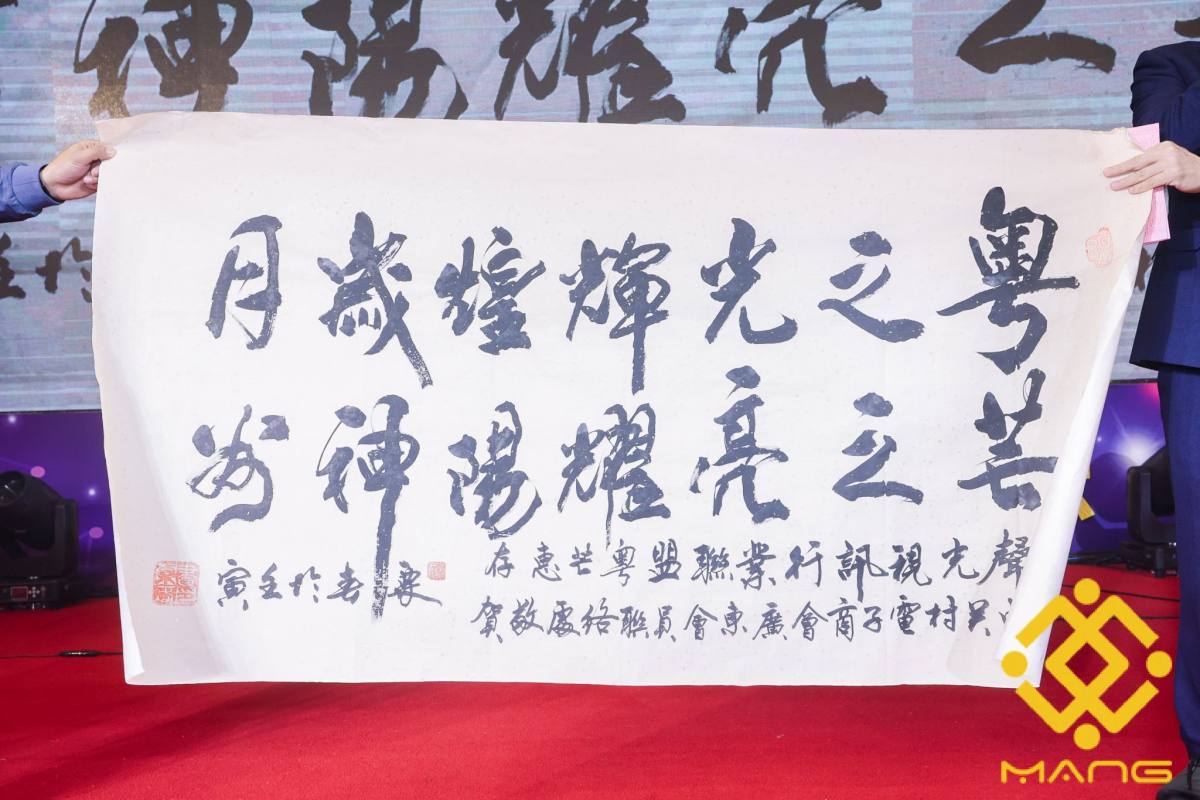 之亮耀陽神
於壬
粵之光輝煌歲月
芒之亮耀陽神州
聲光視訊行業聯盟粵芒惠存
关村電子商會廣東會員聯絡處敬賀
春於壬寅
MANG